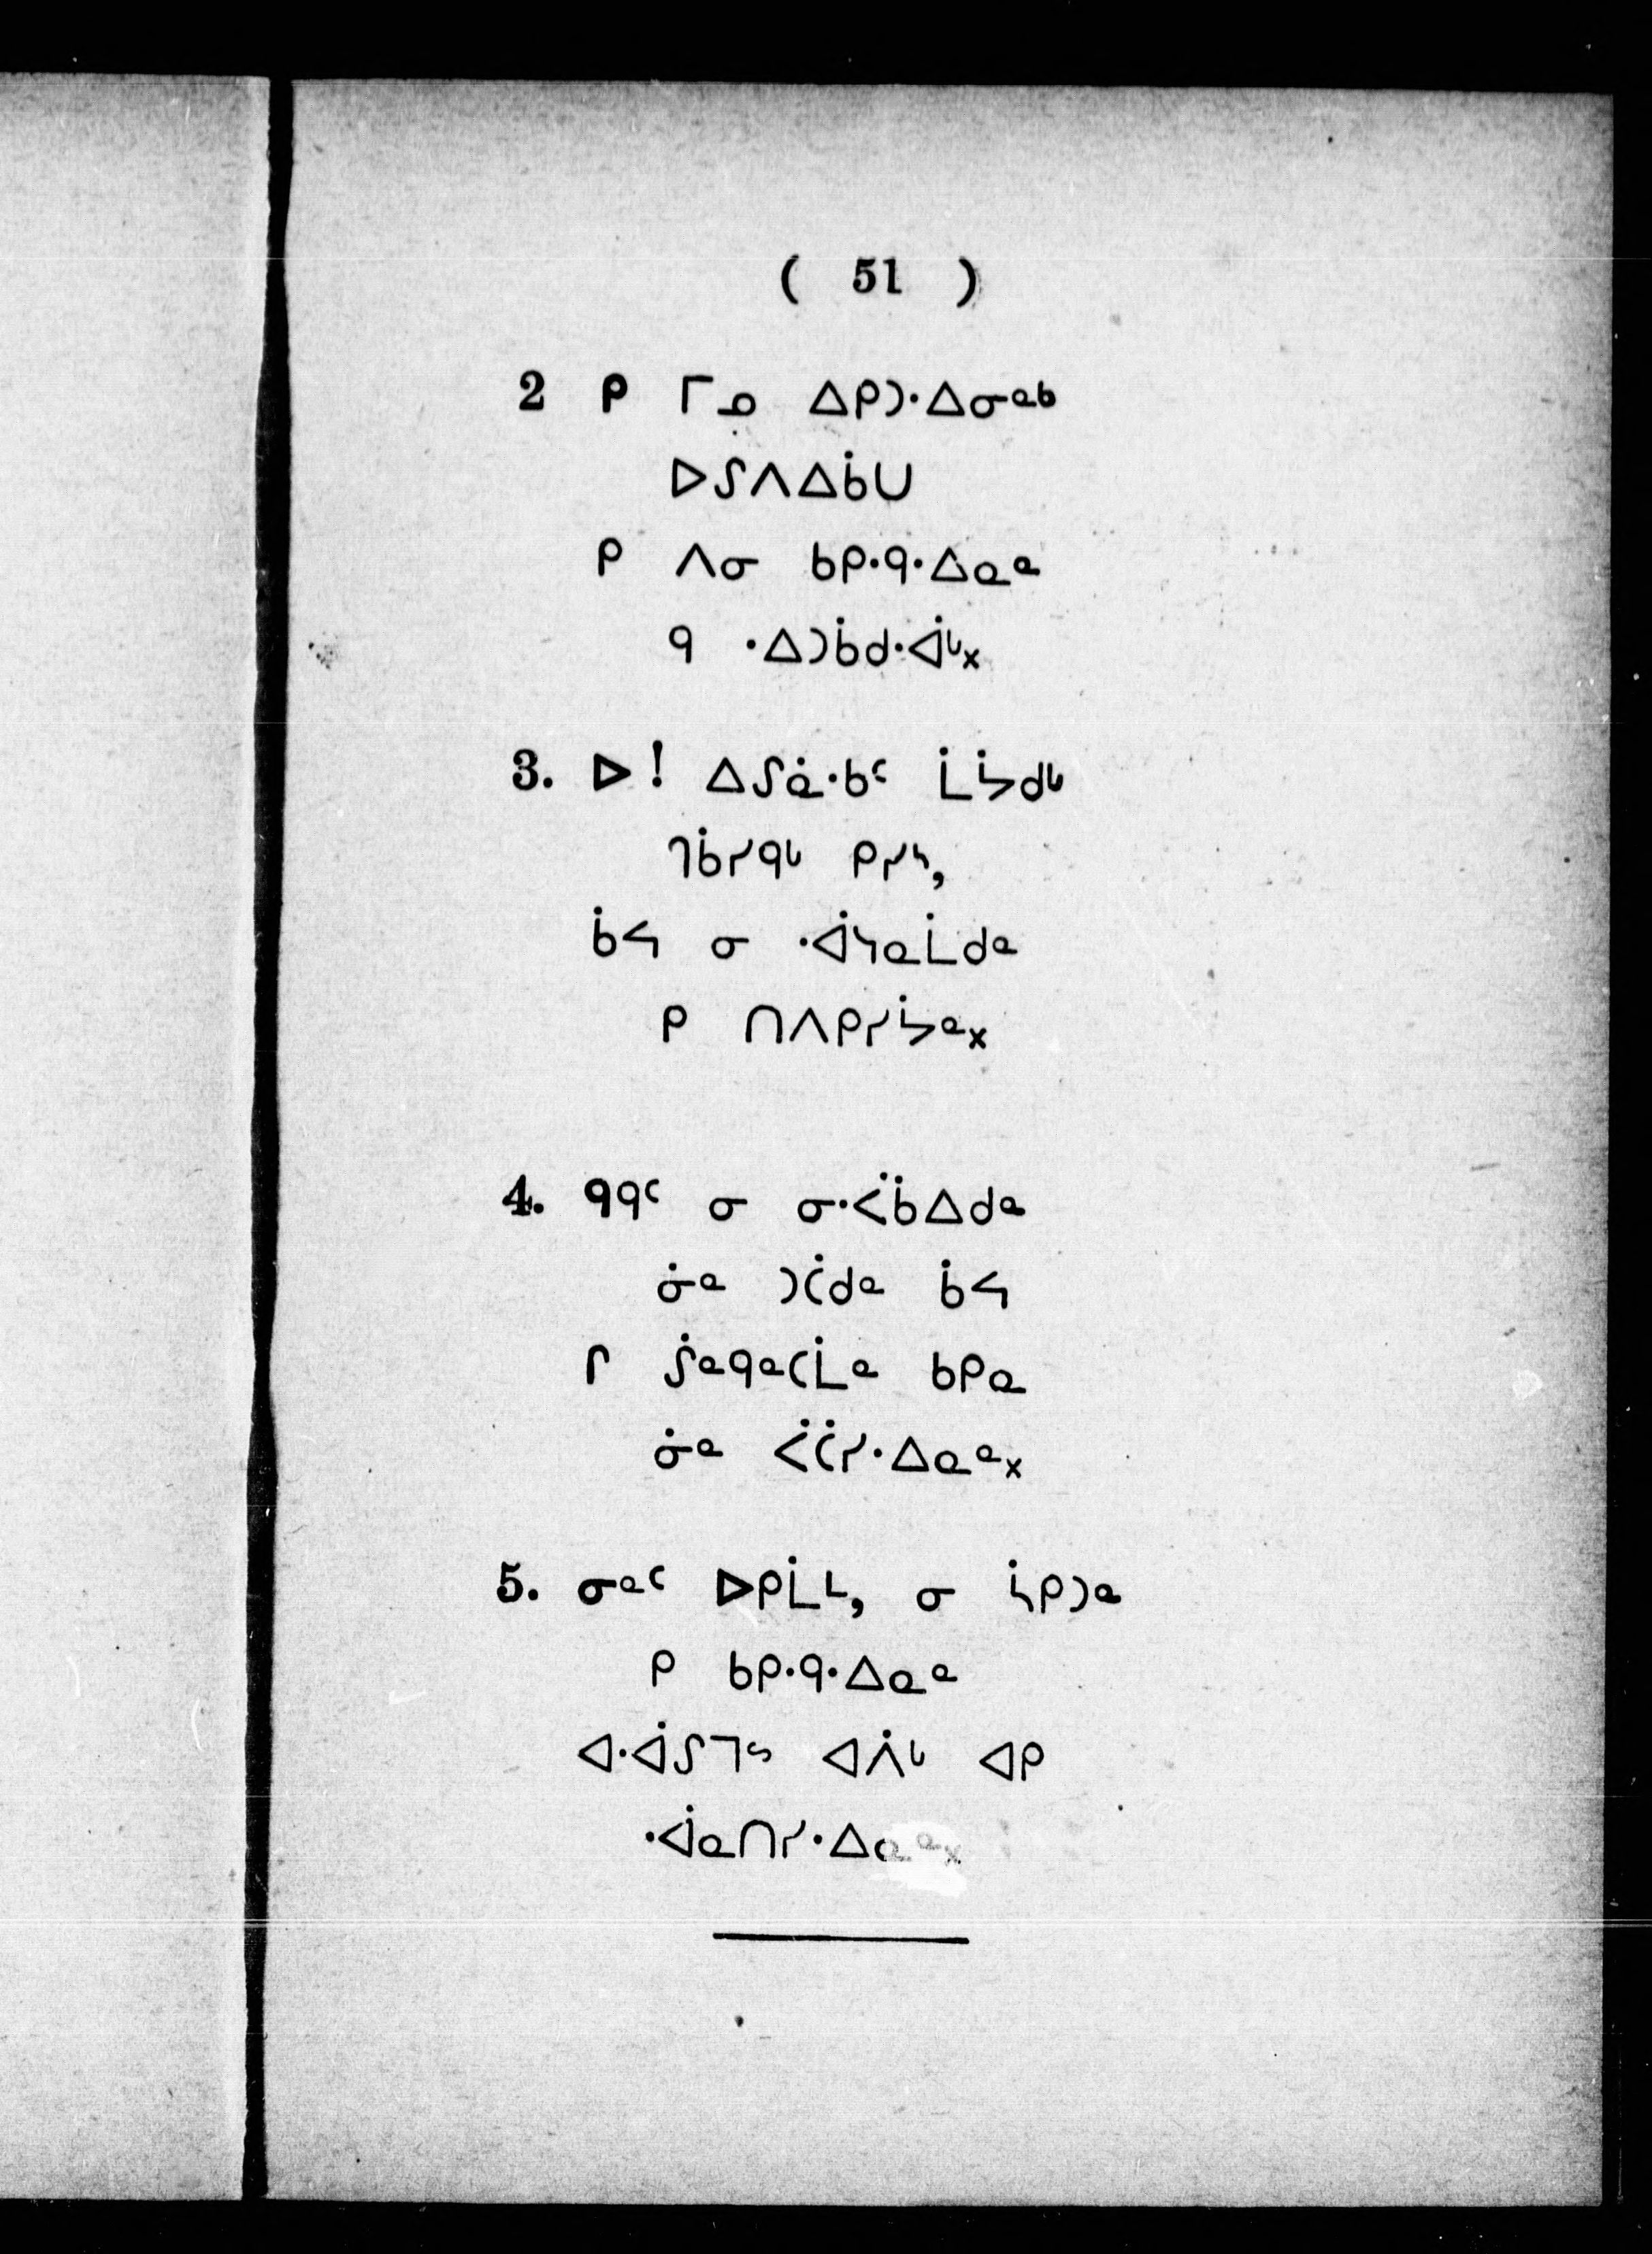 ( 51 )
2 ᑭ ᒥᓄ ᐃᑭᑐᐧᐃᓂᓐᒃ
ᐅᔑᐱᐃᑳᑌ
ᑭ ᐱᓂ ᑲᑭᐧᑫᐧᐃᓇᓐ
ᑫ ᐧᐃᑐᑳᑯᐧᐋᒡ᙮
3. ᐅ! ᐃᔑᓈᐧᑲᑦ ᒫ ᔮᑯᒡ
ᒉᑳᓯᑫᒡ ᑭᓯᔅ,
ᑳᔕ ᓂ ᐧᐋᓴᓇᒫᑯᓐ
ᑭ ᑎᐱᑭᓯᔮᓐ᙮
4. ᑫᑫᑦ ᓂ ᓂᐧᐹᑳᐃᑯᓐ
ᓃᓐ ᑐᑖᑯᓐ ᑳᔕ
ᒋ ᔒᓐᑫᓐᑕᒫᓐ ᑲᑭᓇ
ᓃᓐ ᐹᑖᓯᐧᐃᓇᓐ᙮
5. ᓂᓐᑦ ᐅᑭᒫᒻ, ᓂ ᓵᑭᑐᓐ
ᑭ ᑲᑭᐧᑫᐧᐃᓇᓐ
ᐊᐧᐋᔑᒣᔥ ᐊᐲᒡ ᐊᑭ
ᐧᐋᓇᑎᓯᐧᐃᓇᓐ᙮